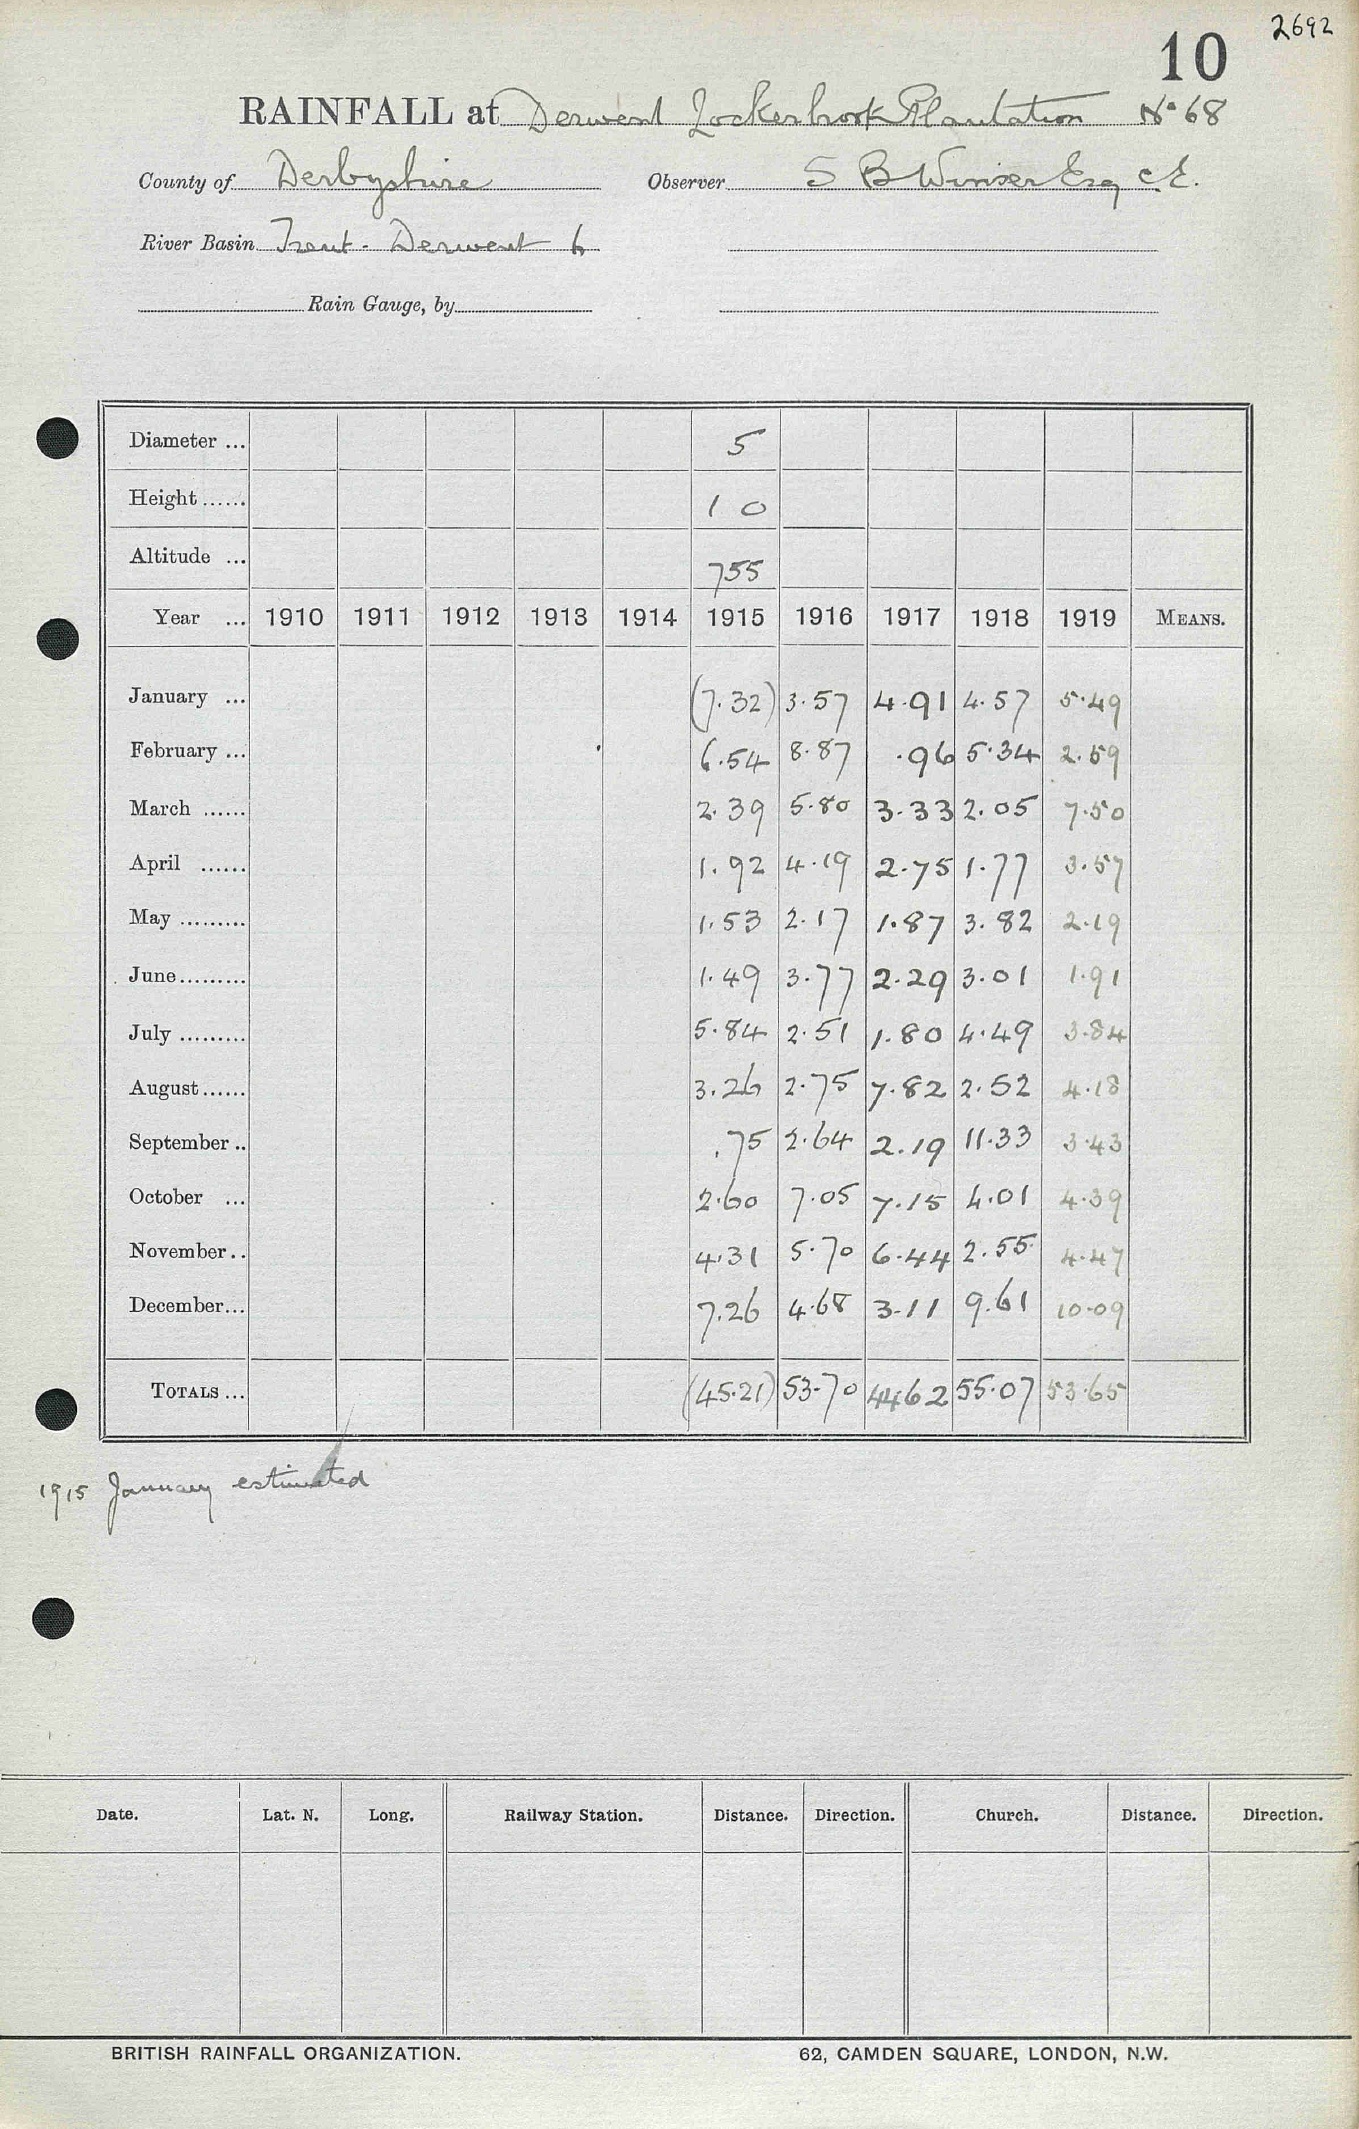 2692
10
RAINFALL at Derwent Lockerbrook Plantation No 68
County of Derbyshire Observer S B Winser Esq C.E.
River Basin Trent - Derwent 6
Rain Gauge, by
Diameter ... 5
Height ...... 1 0
Altitude ... 755
Year ... 1910 1911 1912 1913 1914 1915 1916 1917 1918 1919 MEANS.
January ... (7.32) 3.57 4.91 4.57 5.49
February ... 6.54 8.87 .96 5.34 2.59
March ...... 2.39 5.80 3.33 2.05 7.50
April ...... 1.92 4.19 2.75 1.77 3.57
May ......... 1.53 2.17 1.87 3.82 2.19
June ......... 1.49 3.77 2.29 3.01 1.91
July ......... 5.84 2.51 1.80 4.49 3.84
August ...... 3.26 2.75 7.82 2.52 4.18
September .. .75 2.64 2.19 11.33 3.43
October ... 2.60 7.05 7.15 4.01 4.39
November .. 4.31 5.70 6.44 2.55 4.47
December ... 7.26 4.68 3.11 9.61 10.09
TOTALS ... (45.21) 53.70 4462 55.07 53.65
1915 January estimated
Date. Lat. N. Long. Railway Station. Distance. Direction. Church. Distance. Direction.
BRITISH RAINFALL ORGANIZATION. 62, CAMDEN SQUARE, LONDON, N.W.